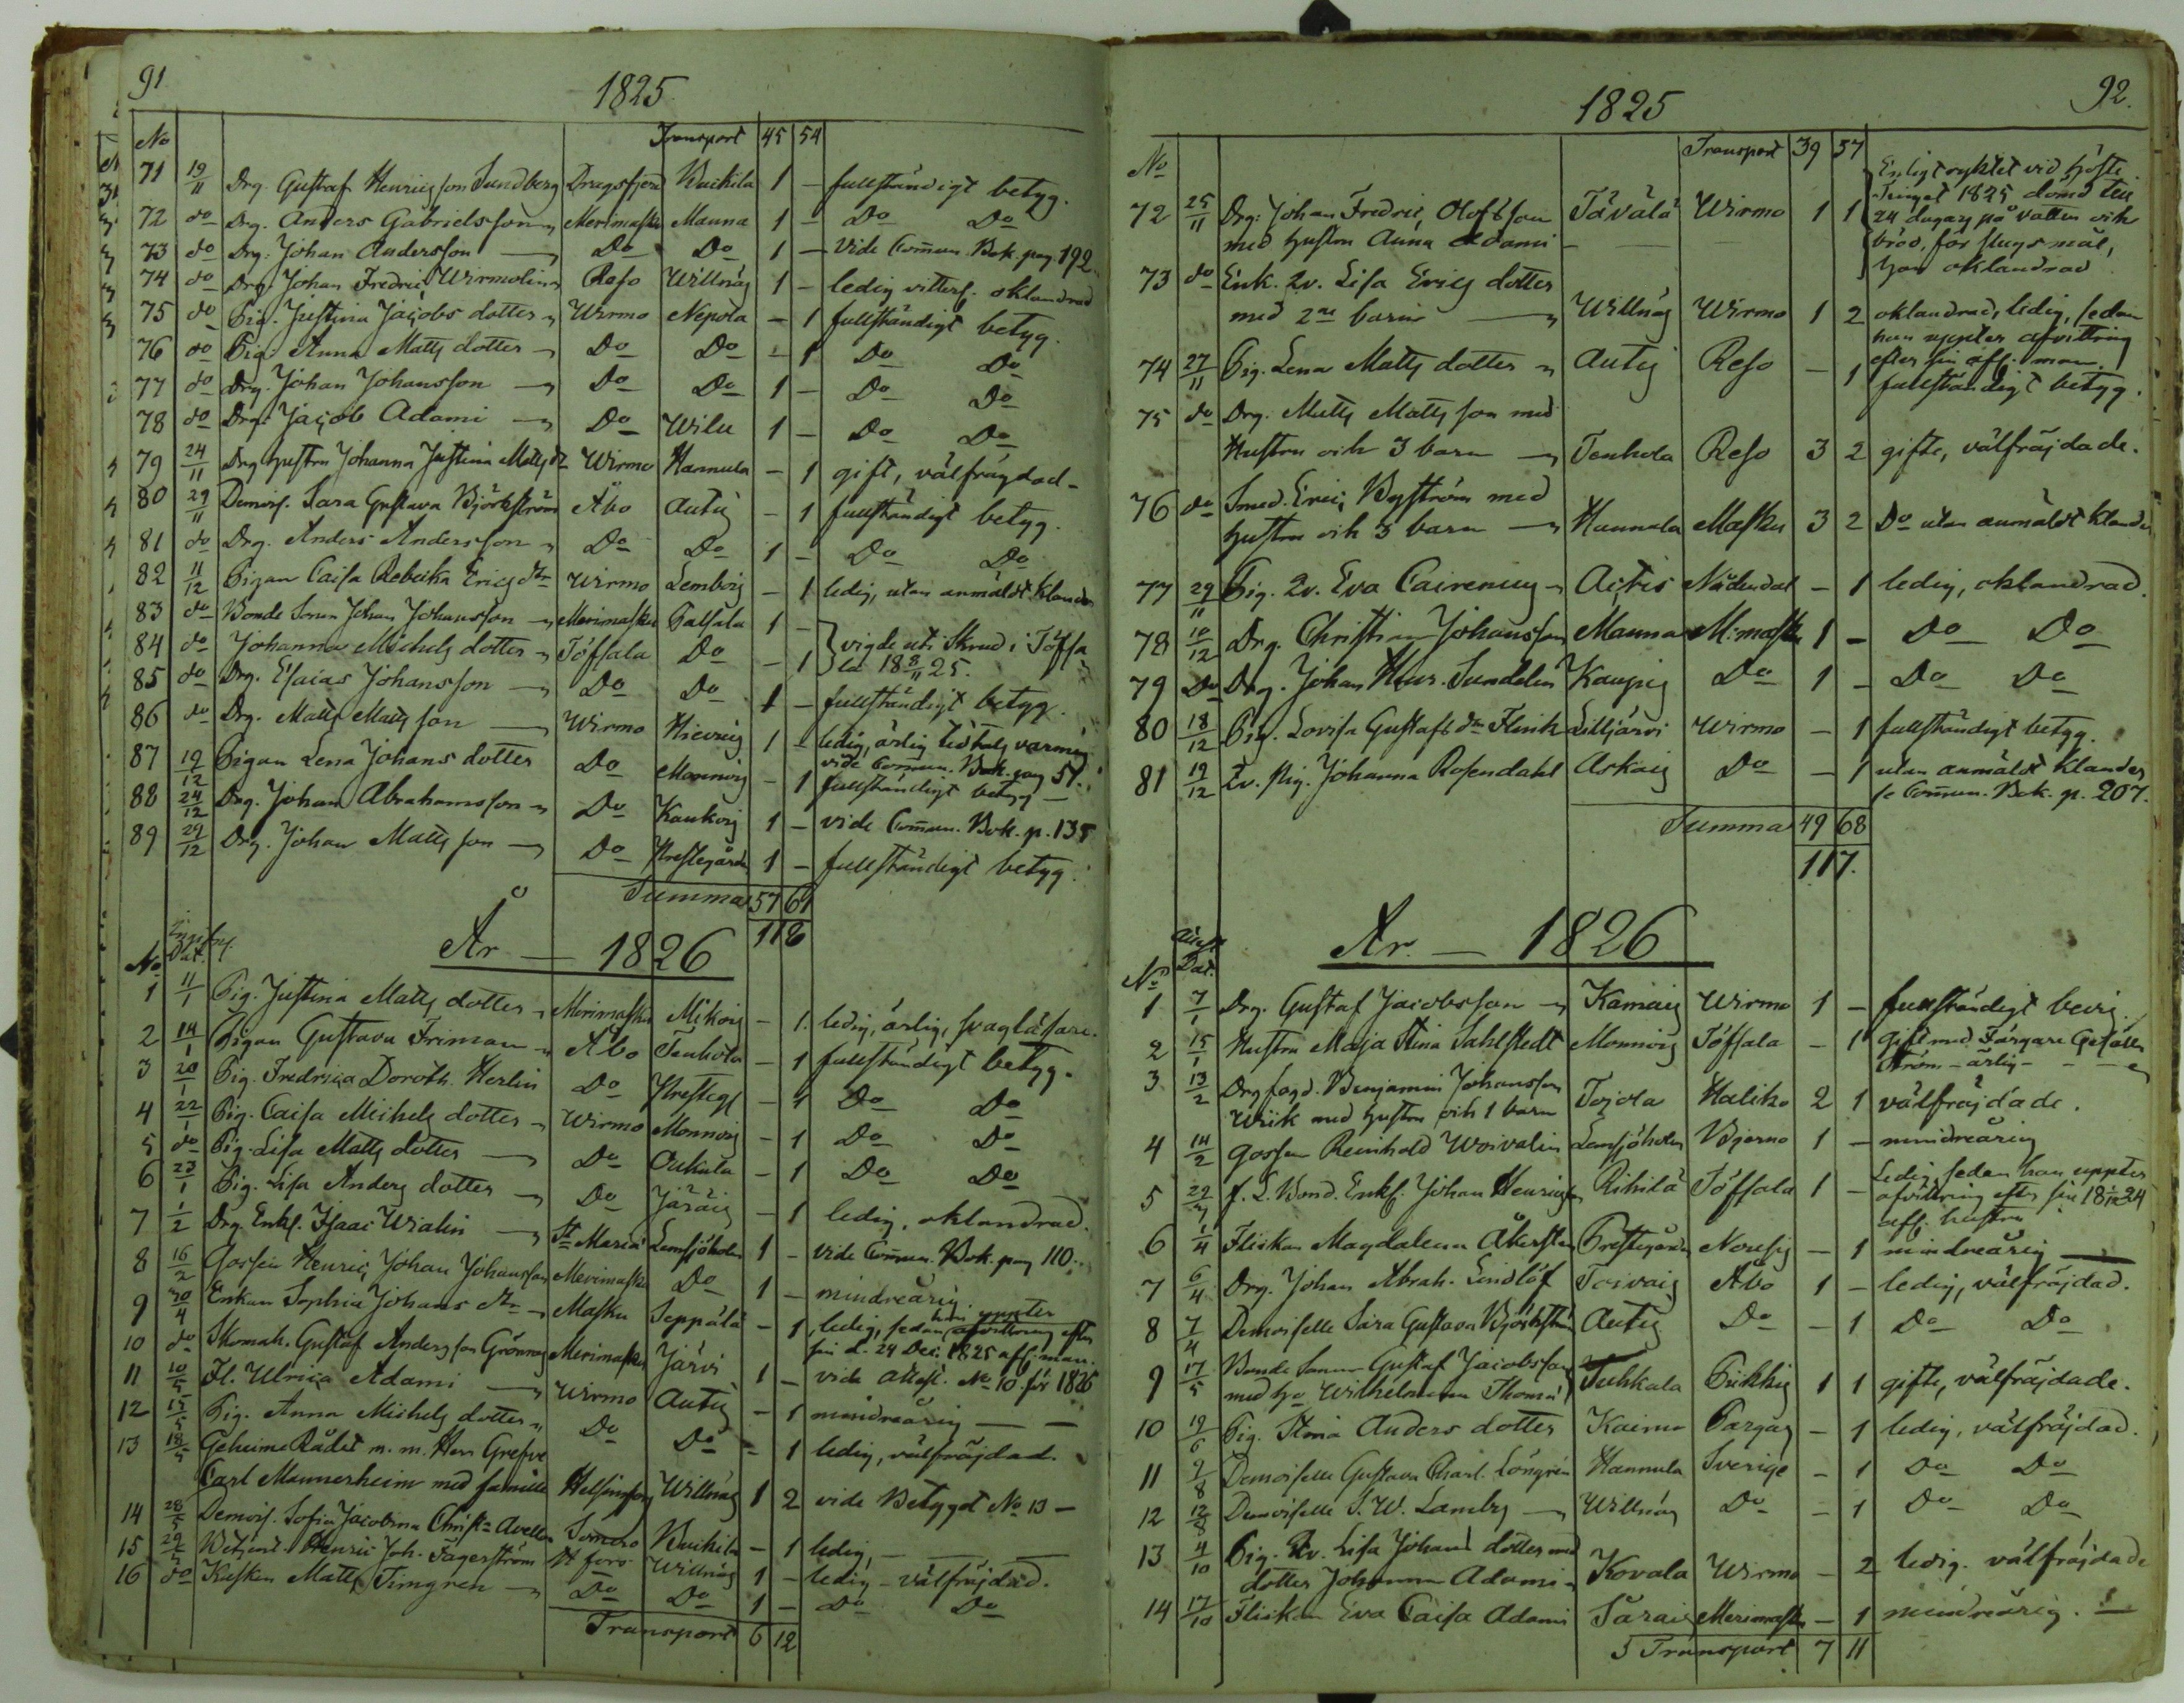 91
1825
No Transport 45 54
71 19/11 Drg. Gustaf Henricsson Sundberg Dragsfjerd Kuikila 1 – fullständigt betyg.
72 do Drg. Anders Gabrielsson Merimasku Manna 1 – Do Do
73 do Drg. Johan Andersson Do Do 1 – Vide Com̄un. Bok. pag. 192.
74 do Drg. Johan Fredric Wirmolin Reso Willnäs 1 – ledig oklandrad
75 do Pig. Justina Jacobs dotter Wirmo Nepola – 1 fullständigt betyg.
76 do Pig. Anna Matts dotter Do Do – 1 Do Do
77 do Drg. Johan Johansson Do Do 1 – Do Do
78 do Drg. Jacob Adami Do Wilu 1 – Do Do
79 24/11 Drg. hustru Johanna Justina Matts dr Wirmo Hannula – 1 gift, välfrägdad
80 29/11 Demois. Sara Gustava Björkström Åbo Autis – 1 fullständigt betyg.
81 do Drg. Anders Andersson Do Do 1 – Do Do
82 11/12 Pigan Caisa Rebecka Erics dr Wirmo Lembois – 1 ledig, utan anmäldt klander
83 do Bonde Sonen Johan Johansson Merimasku Palsala 1 –
84 do Johanna Michels dotter Töfsala Do – 1 vigde uti Skrud i Töfsa
la 18 8/11 25.
85 do Drg. Esaias Johansson Do Do 1 – fullständigt betyg.
86 do Drg. Matts Mattsson Wirmo Hievais 1 – ledig, ärlig
vide Com̄un. Bok. pag 51.
87 19/12 Pigan Lena Johans dotter Do Monnois – 1 fullständigt betyg
88 24/12 Drg. Johan Abrahamsson Do Kaukois 1 – vide Com̄un. Bok. p. 135
89 29/12 Drg. Johan Matts son Do Prestegården 1 – fullständigt betyg.
Summa 57 61
118
År – 1826
No Dat.
1 11/1 Pig. Justina Matts dotter Merimasku Mikois – 1. ledig, ärlig, svag läsare.
2 14/1 Pigan Gustava Friman Åbo Tenhola – 1 fullständigt betyg.
3 20/1 Pig. Fredrica Doroth. Herlin Do Presteg – 1 Do Do
4 22/1 Pig. Caisa Michels dotter Wirmo Monnois – 1 Do Do
5 do Pig. Lisa Matts dotter Do Oukula – 1 Do Do
6 23/1 Pig. Lisa Anders dotter Do Järäis – 1 ledig, oklandrad.
7 1/2 Drg. Enkl. Isaac Wialin St Mariæ Lemsjöholm 1 – vide Com̄un. Bok. pag 110.
8 16/2 Gossen Henric Johan Johansson Merimasku Do 1 – mindreårig.
9 30/4 Enkan Sophia Johans dr Masku Seppälä – 1 ledig, sedan hon uppter afvittring efter
sin d. 24 Dec. 1825 afl. man.
10 do Skomak. Gustaf Anders son Grönroos Merimasku Järvi 1 – vide attest. No 10 för 1826
11 10/5 Fl. Ulrica Adami Wirmo Autis – 1 mindreårig
12 15/5 Pig. Anna Michels dotter Do Do – 1 ledig, välfräjdad.
13 18/5 Geheime Rådet m. m. Herr Grefve
Carl Mannerheim med famille Helsingfors Willnäs 1 2 vide Betyget No 13
14 28/5 Demois. Sofia Jacobina Christ:a Avellan Somero Kuikila – 1 ledig,
15 29/5 Betjent. Henric Joh. Fagerström Willnäs 1 – ledig – välfräjdad.
16 do Kusken Matts Timgren Do Do 1 – Do Do
Transport 6 12
1825
92.
No Transport 39 57
72 25/11 Drg. Johan Fredric Olofsson Tävälä Wirmo 1 1 Enligt ryktet vid Höste
med hustru Anna Adami Tinget 1825 dömd till
24 dagars på vatten och
bröd, för slagsmål,
hon oklandrad
73 do Enk. Qv. Lisa Erics dotter
med 2ne barn Willnäs Wirmo 1 2 oklandrad, ledig, sedan
hon uppter afvittring
efter sin afl. man
74 27/11 Pig. Lena Matts dotter Autis Reso – 1 fullständigt betyg.
75 do Drg. Matts Matts son med
Hustru och 3 barn Tenhola Reso 3 2 gifte, välfräjdade.
76 do Smed. Eric Byström med
hustru och 3 barn Hannula Masku 3 2 Do utan anmäldt klander
77 29/11 Pig. Qv. Eva Cairenius Actis Nådendal – 1 ledig, oklandrad.
78 10/12 Drg. Christian Johansson Manna M:masku 1 – Do Do
79 Do Drg. Johan Henr. Sundelin Kaupis Do 1 – Do Do
80 18/12 Pig. Lovisa Gustafs dr Flink Lilljärvi Wirmo – 1 fullständigt betyg.
81 19/12 Qv. Pig. Johanna Rosendahl Askais Do – 1 utan anmäldt klander
se Com̄un. Bok. p. 207.
Summa 49 68
117.
År – 1826
No Dat.
1 7/1 Drg. Gustaf Jacobsson Kamais Wirmo 1 – fullständigt bevis.
2 15/1 Hustru Maja Stina Sahlstedt Monnois Töfsala – 1 gift med Färgare Gesällen
Ström – ärlig
3 13/2 Drg fogd. Benjamin Johansson
Wiik med hustru och 1 barn Tojola Haliko 2 1 välfräjdade.
4 14/2 Gossen Reinhold Woivalin Lemsjöholm Bjerno 1 – mindreårig
5 22/3 f. L. Bond. Enkl. Johan Henricsson Rihilä Töfsala 1 – Ledig, sedan han uppter
afvittring efter sin 18 24
afl. hustru
6 1/4 Flickan Magdalena Åkersten Prestegården Nousis – 1 mindreårig
7 6/4 Drg. Johan Abrah. Lindlöf Toivais Åbo 1 – ledig, välfräjdad.
8 7/4 Demoiselle Sara Gustava Björkström Autis Do – 1 Do Do
9 17/5 Bonde Sonen Gustaf Jacobsson
med hu Wilhelmina Thomæ Tuhkala Pikkis 1 1 gifte, välfräjdade.
10 19/6 Pig. Stina Anders dotter Kaimo Pargas – 1 ledig, välfräjdad.
11 9/8 Demoiselle Gustava Charl. Löngren Hannula Sverige – 1 Do Do
12 12/8 Demoiselle S. W. Lamby Willnäs Do – 1 Do Do
13 4/10 Pig. Qv. Lisa Johans dotter med
dotter Johanna Adami Kovala Wirmo – 2 ledig. välfräjdade
14 17/10 Flickan Eva Caisa Adami Särais Merimasku – 1 mindreårig.
Transport 7 11